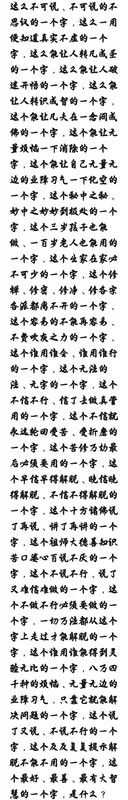 这么不可说、不可说的不
思议的一个字，这么一用
便知道真实不虚的一个
字，这么能让人转凡成圣
的一个字，这么能让人破
迷开悟的一个字，这么能
让人转识成智的一个字，
这个能让凡夫在一念间成
佛的一个字，这个能让无
量烦恼一下消除的一个
字，这个能让自己无量无
边的业障习气一下化空的
一个字，这个秘中之秘、
妙中之妙妙到极处的一个
字，这个三岁孩子也能
做、一百岁老人也能用的
一个字，这个在家出家必
不可少的一个字，这个修
禅、修密、修净，修各宗
各派都离不开的一个字，
这个容易的不能再容易、
不费吹灰之力的一个字，
这个谁用谁会、谁用谁行
的一个字，这个无法的
法、无字的一个字，这个
不信不行、信了立做真管
用的一个字，这个不信就
永远轮回受苦、受折磨的
一个字，这个苦修万劫最
后必须要用的一个字，这
个早信早得解脱、晚信晚
得解脱、不信不得解脱的
一个字，这个十方诸佛说
了再说、讲了再讲的一个
字，这个祖师大德善知识
苦口婆心百说不厌的一个
字，这个不说不行、说了
又难信难做的一个字，这
个不做不行必须要做的一
个字，一切万法都从这个
字上走过才能解脱的一个
字，这个谁用谁能得到灵
验无比的一个字，八万四
千种的烦恼、无量无边的
业障习气，只靠它就能解
决问题的一个字，这个说
了又说、不说不行的一个
字，这个及及复复提示解
脱不能不用的一个字，这
个最好、最善、最有大智
慧的一个字，是什么？